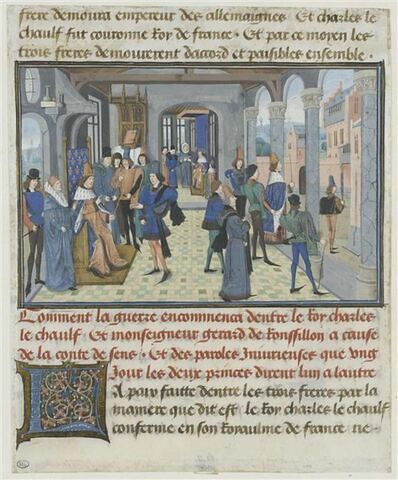 frere demoura empereur des allemaignes Et charles le
chaulf fut couronne Roy de france · Et par ce moyen les
trois freres demourerent daccord et paisibles ensemble ·
Comment la guerre encommenca dentre le Roy charles
le chaulf · Et monseigneur gerard de Roussillon a cause
de la conte de sens · Et des paroles Iniurieuses que vng
Jour les deux princes dirent lun a lautre
La paix faitte dentre les trois freres par la
maniere que dit est le Roy charles le chaulf
conferme en son Royaulme de france ne-